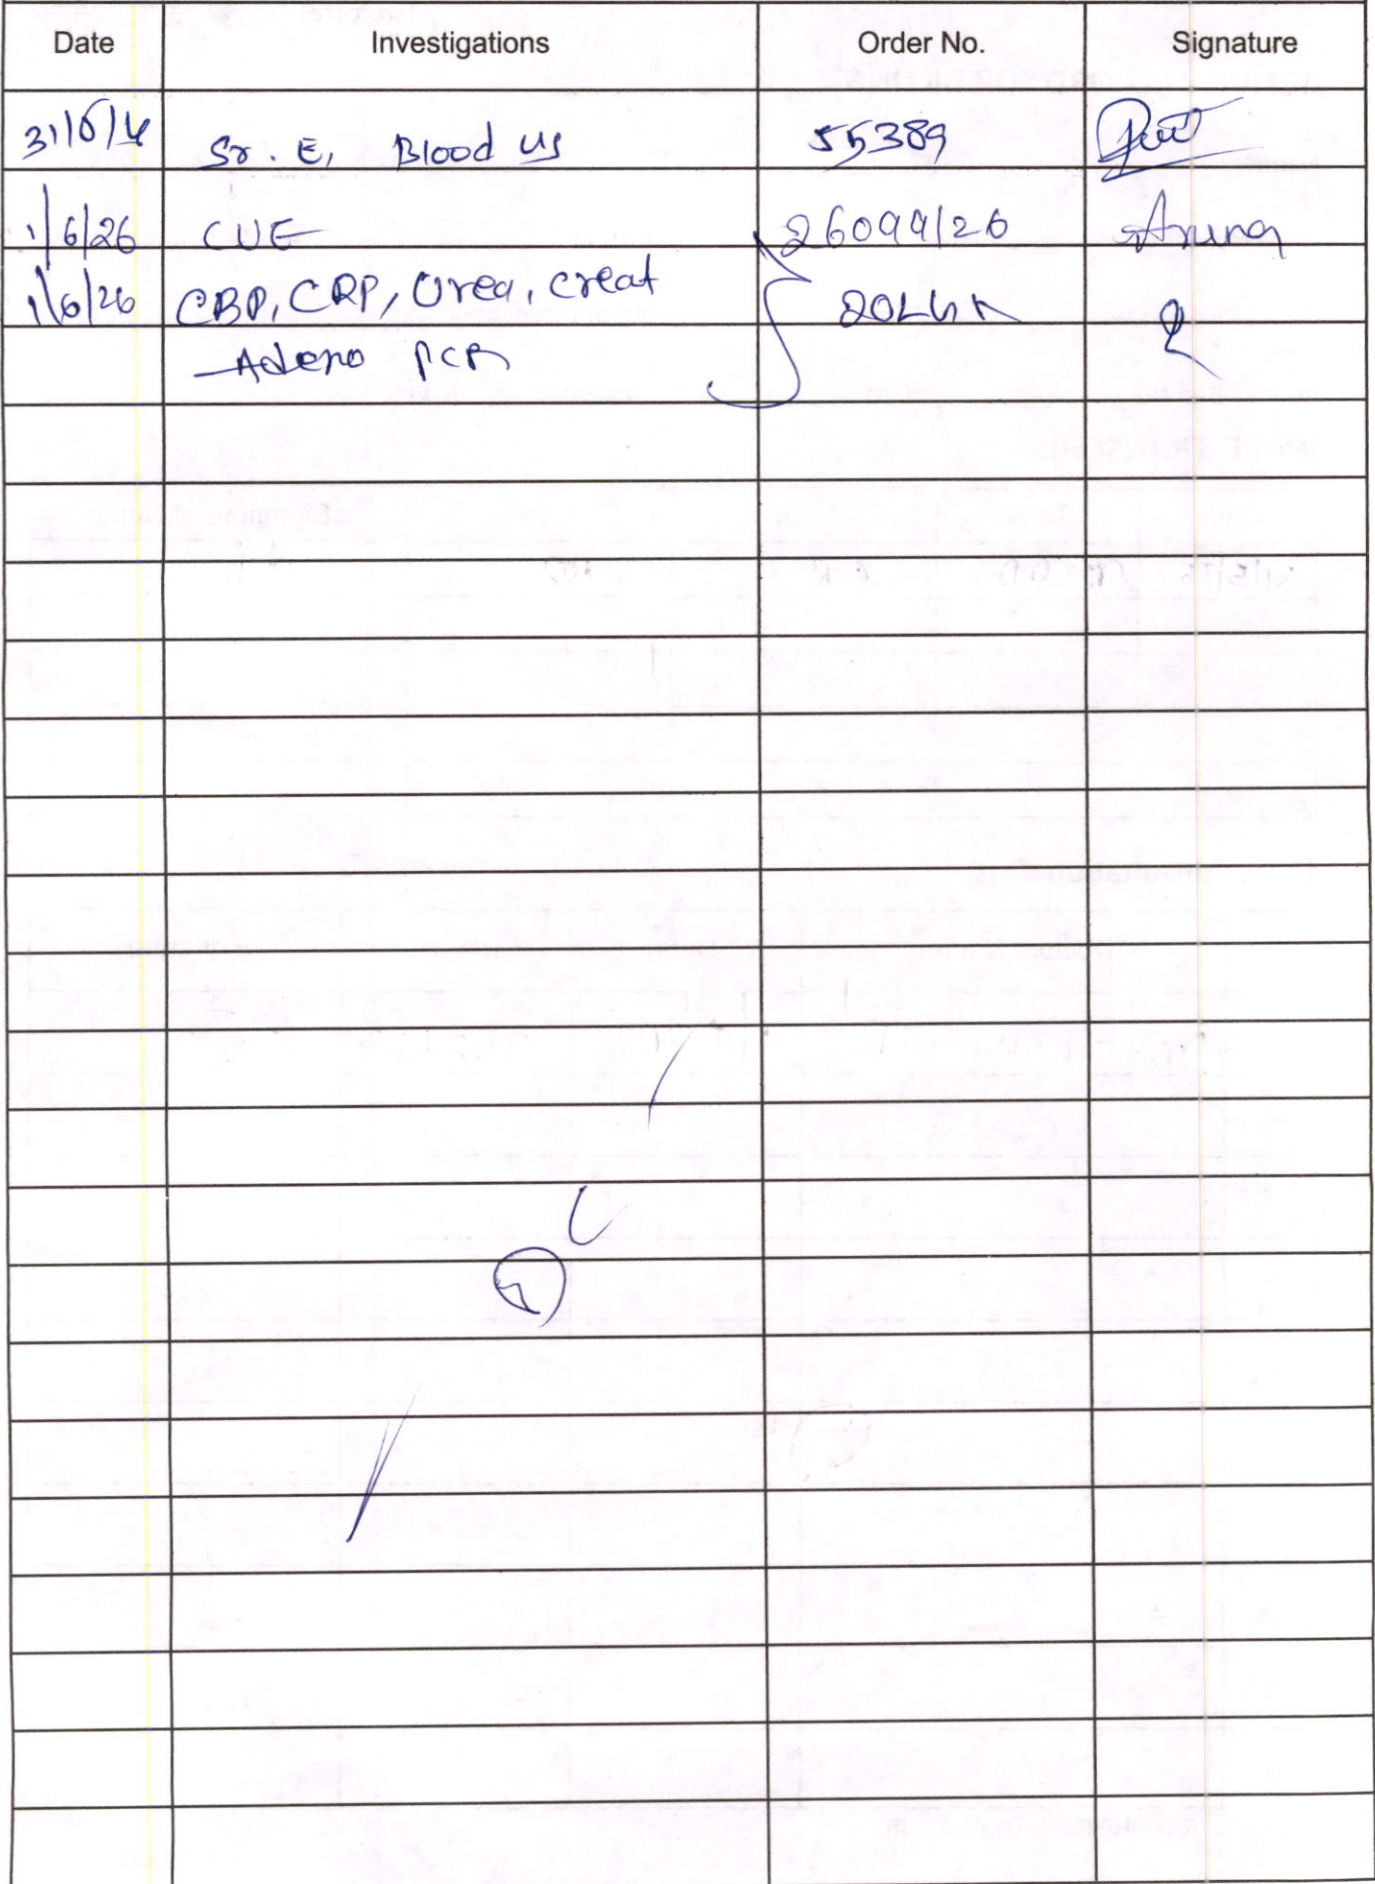 Date Investigations Order No. Signature
31/5/26 Sr. E, Blood c/s 55389
1/6/26 CUE 26099/26 Aruna
1/6/26 CBP, CRP, Urea, creat
Adeno PCR